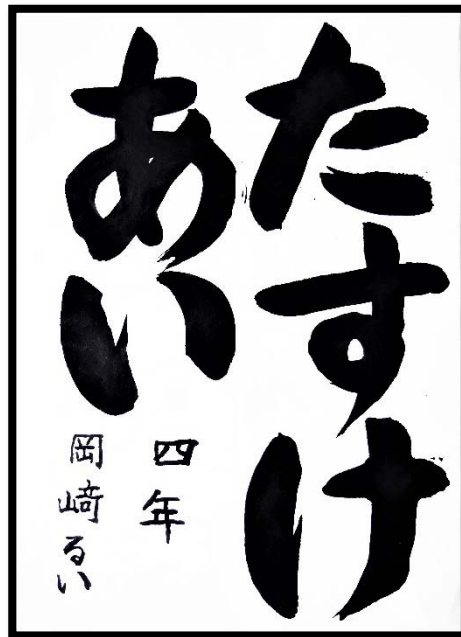 たすけ
あい
四年
岡﨑るい